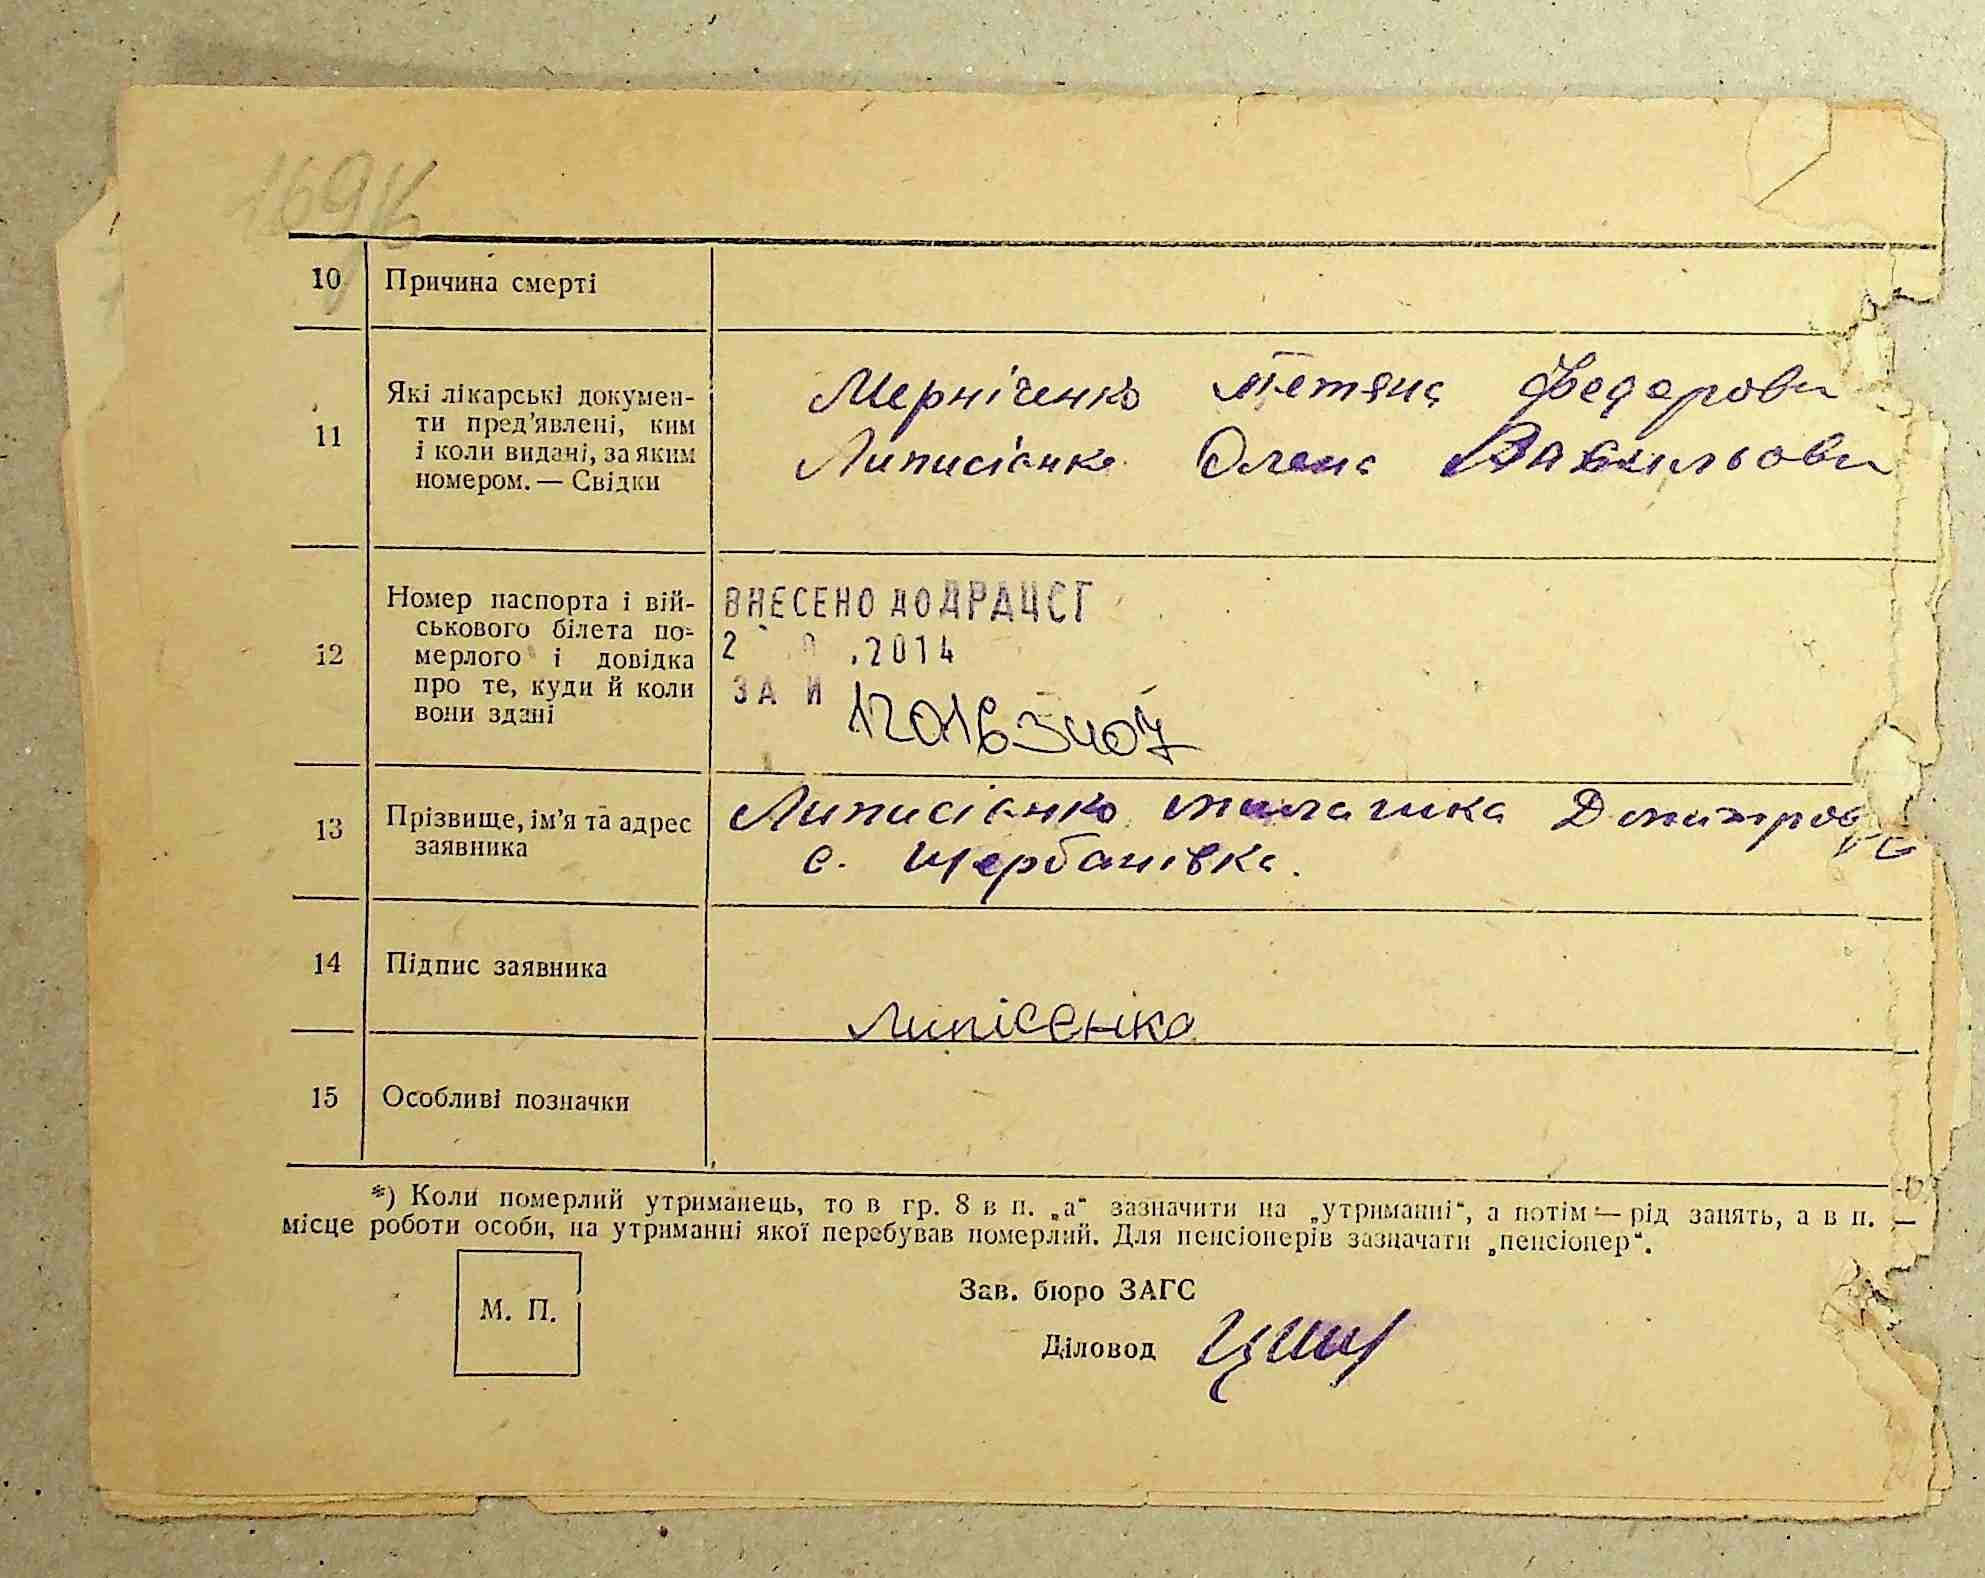 10 Причина смерті
11 Які лікарські докумен-
ти пред'явлені, ким
і коли видані, за яким
номером. — Свідки
Мерніченко Тетяна Федорови
Олена Васильови
12 Номер паспорта і вій-
ськового білета по-
мерлого і довідка
про те, куди й коли
вони здані
ВНЕСЕНО ДО ДРАЦСГ
.2014
ЗА И 120163407
13 Прізвище, ім'я та адрес
заявника
с. Щербанівка.
14 Підпис заявника
Липісенко
15 Особливі позначки
*) Коли померлий утриманець, то в гр. 8 в п. „а“ зазначити на „утриманні“, а потім — рід занять, а в п. —
місце роботи особи, на утриманні якої перебував померлий. Для пенсіонерів зазначати „пенсіонер“.
М. П.
Зав. бюро ЗАГС
Діловод